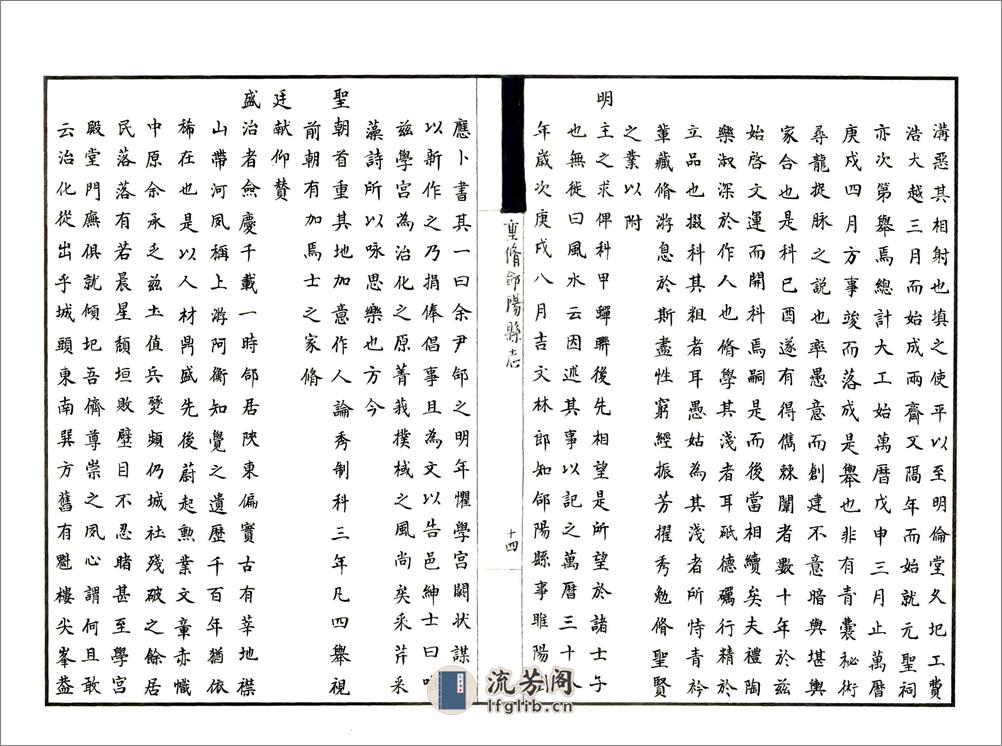 溝惡其相射也填之使平以至明倫堂久圯工費
浩大越三月而始成兩齋又隔年而始就元聖祠
亦次第舉焉總計大工始萬曆戊申三月止萬曆
庚戌四月方事竣而落成是舉也非有青囊秘術
尋龍捉脉之説也率愚意而創建不意暗與堪輿
家合也是科已酉遂有得儁棘闈者數十年於茲
始啓文運而開科焉嗣是而後當相續矣夫禮陶
樂淑深於作人也脩學其淺者耳砥德礪行精於
立品也掇科其粗者耳愚姑為其淺者所恃青衿
輩藏脩游息於斯盡性窮經振芳擢秀勉脩聖賢
之業以附
明主之求俾科甲蟬聯後先相望是所望於諸士乎
也無徙曰風水云因述其事以記之萬曆三十
年歲次庚戌八月吉文林郎知郃陽縣事睢陽
重脩郃陽縣志
十四
應卜書其一曰余尹郃之明年懼學宮闕狀謀
以新作之乃捐俸倡事且為文以告邑紳士曰
茲學宮為治化之原菁莪樸棫之風尚矣采芹采
藻詩所以咏思樂也方今
聖朝首重其地加意作人論秀制科三年凡四舉視
前朝有加焉士之家脩
廷献仰賛
盛治者僉慶千載一時郃居陝東偏實古有莘地襟
山帶河夙稱上游阿衡知覺之遺歷千百年猶依
稀在也是以人材鼎盛先後蔚起勲業文章亦懺
中原余承乏茲土值兵燹頻仍城社殘破之餘居
民落落有若晨星頽垣敗壁目不忍睹甚至學宮
殿堂門廡俱就傾圯吾儕尊崇之夙心謂何且敢
云治化從出乎城頭東南巽方舊有魁樓尖峯葢
流芳阁
lfglib.cn